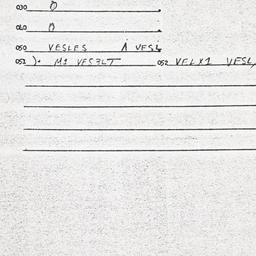 030 0
040 0
050 VESLES A VESL
051 ). M1 VES3LT 052 VELX1 VESL